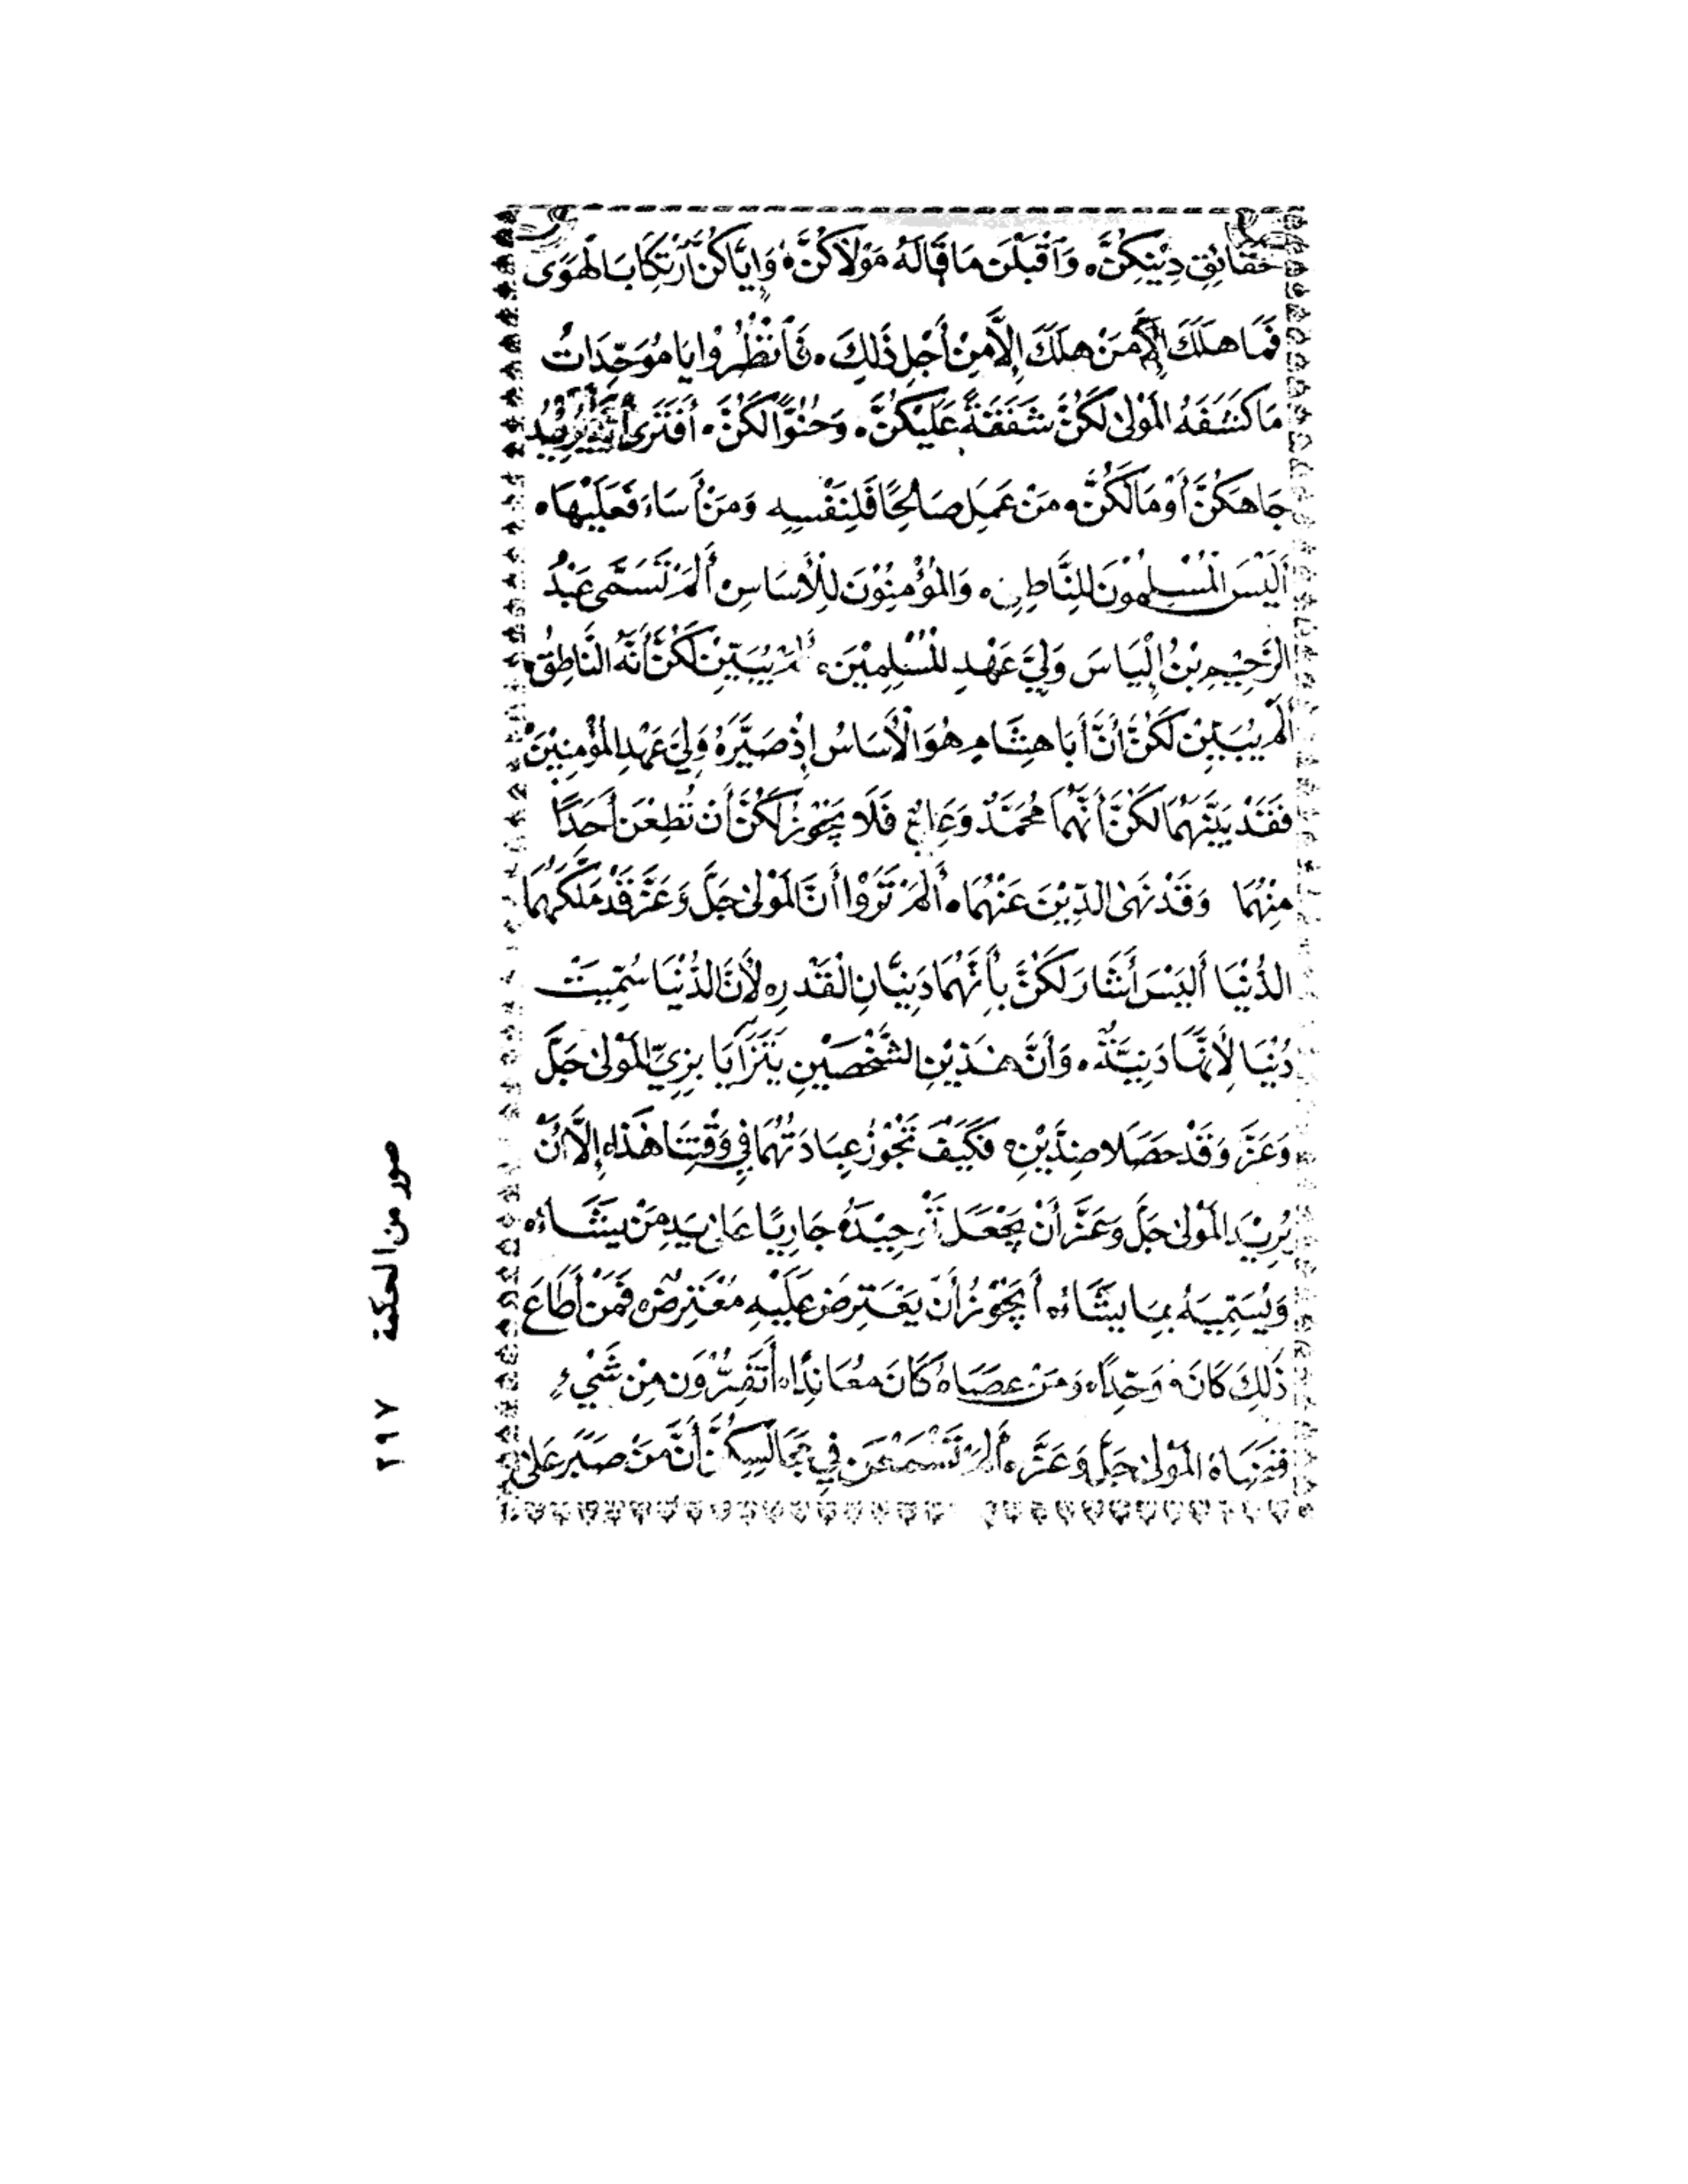 حَقَائِقِ دِيْنِكُنَّ. وَاَقْبَلْنَ مَا قَالَهُ مَوْلَاكُنَّ. وَاِيَّاكُنَّ اَرْتِكَابَ الْهَوَى
فَمَا هَلَكَ الْأُمَمَنْ هَلَكَ إِلَّا مِنْ أَجْلِ ذَلِكَ. فَاَنْظُرُوْا يَا مُوَحِّدَاتُ
مَا كَشَفَهُ الْمَوْلَىٰ لَكُنَّ شَفَقَةً عَلَيْكُنَّ. وَحُنُوًّا لَكُنَّ. أَفَتَرَى أَنَّهُ يُرِيْدُ
جَاهَكُنَّ أَوْ مَالَكُنَّ. مَنْ عَمِلَ صَالِحًا فَلِنَفْسِهِ وَمَنْ أَسَاءَ فَعَلَيْهَا.
أَلَيْسَ الْمُسْلِمُوْنَ لِلنَّاطِقِ. وَالْمُؤْمِنُوْنَ لِلْأَسَاسِ أَلَمْ تَسَمَّى عَبْدُ
الرَّحِيْمِ بْنُ إِلْيَاسَ وَلِيَّ عَهْدِ الْمُسْلِمِيْنَ. أَلَمْ يُبَيِّنْ لَكُنَّ أَنَّهُ النَّاطِقُ.
أَلَمْ يُبَيِّنْ لَكُنَّ أَنَّ أَبَا هِشَامٍ هُوَ الْأَسَاسُ إِذْ صَيَّرَهُ وَلِيَّ عَهْدِ الْمُؤْمِنِيْنَ
فَقَدْ بَيَّنَهُمَا لَكُنَّ أَنَّهُمَا مُحَمَّدٌ وَعَلِيٌّ فَلَا يَجُوْزُ لَكُنَّ أَنْ تُطِعْنَ أَحَدًا
مِنْهُمَا وَقَدْ نَهَى الدِّيْنَ عَنْهُمَا. أَلَمْ تَرَوْا أَنَّ الْمَوْلَىٰ جَلَّ وَعَزَّ قَدْ مَلَّكَهُمَا
الدُّنْيَا أَلَيْسَ أَشَارَ لَكُنَّ بِأَنَّهُمَا دَنِيَّانِ الْقَدْرِ. لِأَنَّ الدُّنْيَا سُمِّيَتْ
دُنْيَا لِأَنَّهَا دَنِيَّةٌ. وَأَنَّ هٰذَيْنِ الشَّخْصَيْنِ يَتَزَايَا بِزِيِّ الْمَوْلَىٰ جَلَّ
وَعَزَّ وَقَدْ حَصَلَا ضِدَّيْنِ. فَكَيْفَ تَجُوْزُ عِبَادَتُهُمَا فِي وَقْتِنَا هَذَا. إِلَّا أَنْ
يُرِيْدَ الْمَوْلَىٰ جَلَّ وَعَزَّ أَنْ يَجْعَلَ تَوْحِيْدَهُ جَارِيًا عَلَىٰ يَدِ مَنْ يَشَاءُ.
وَيُسَمِّيَهُ بِمَا يَشَاءُ. أَيَجُوْزُ أَنْ يَعْتَرِضَ عَلَيْهِ مُعْتَرِضٌ. فَمَنْ أَطَاعَ
ذَلِكَ كَانَ مُوَحِّدًا. وَمَنْ عَصَاهُ كَانَ مُعَانِدًا. أَتَفِرُّوْنَ مِنْ شَيْءٍ
الْمَوْلَىٰ جَلَّ وَعَزَّ. أَلَمْ تَسْمَعْنَ فِي مَجَالِسِكُنَّ أَنَّ مَنْ صَبَرَ عَلَىٰ
صور من الحكمة ٢١٧